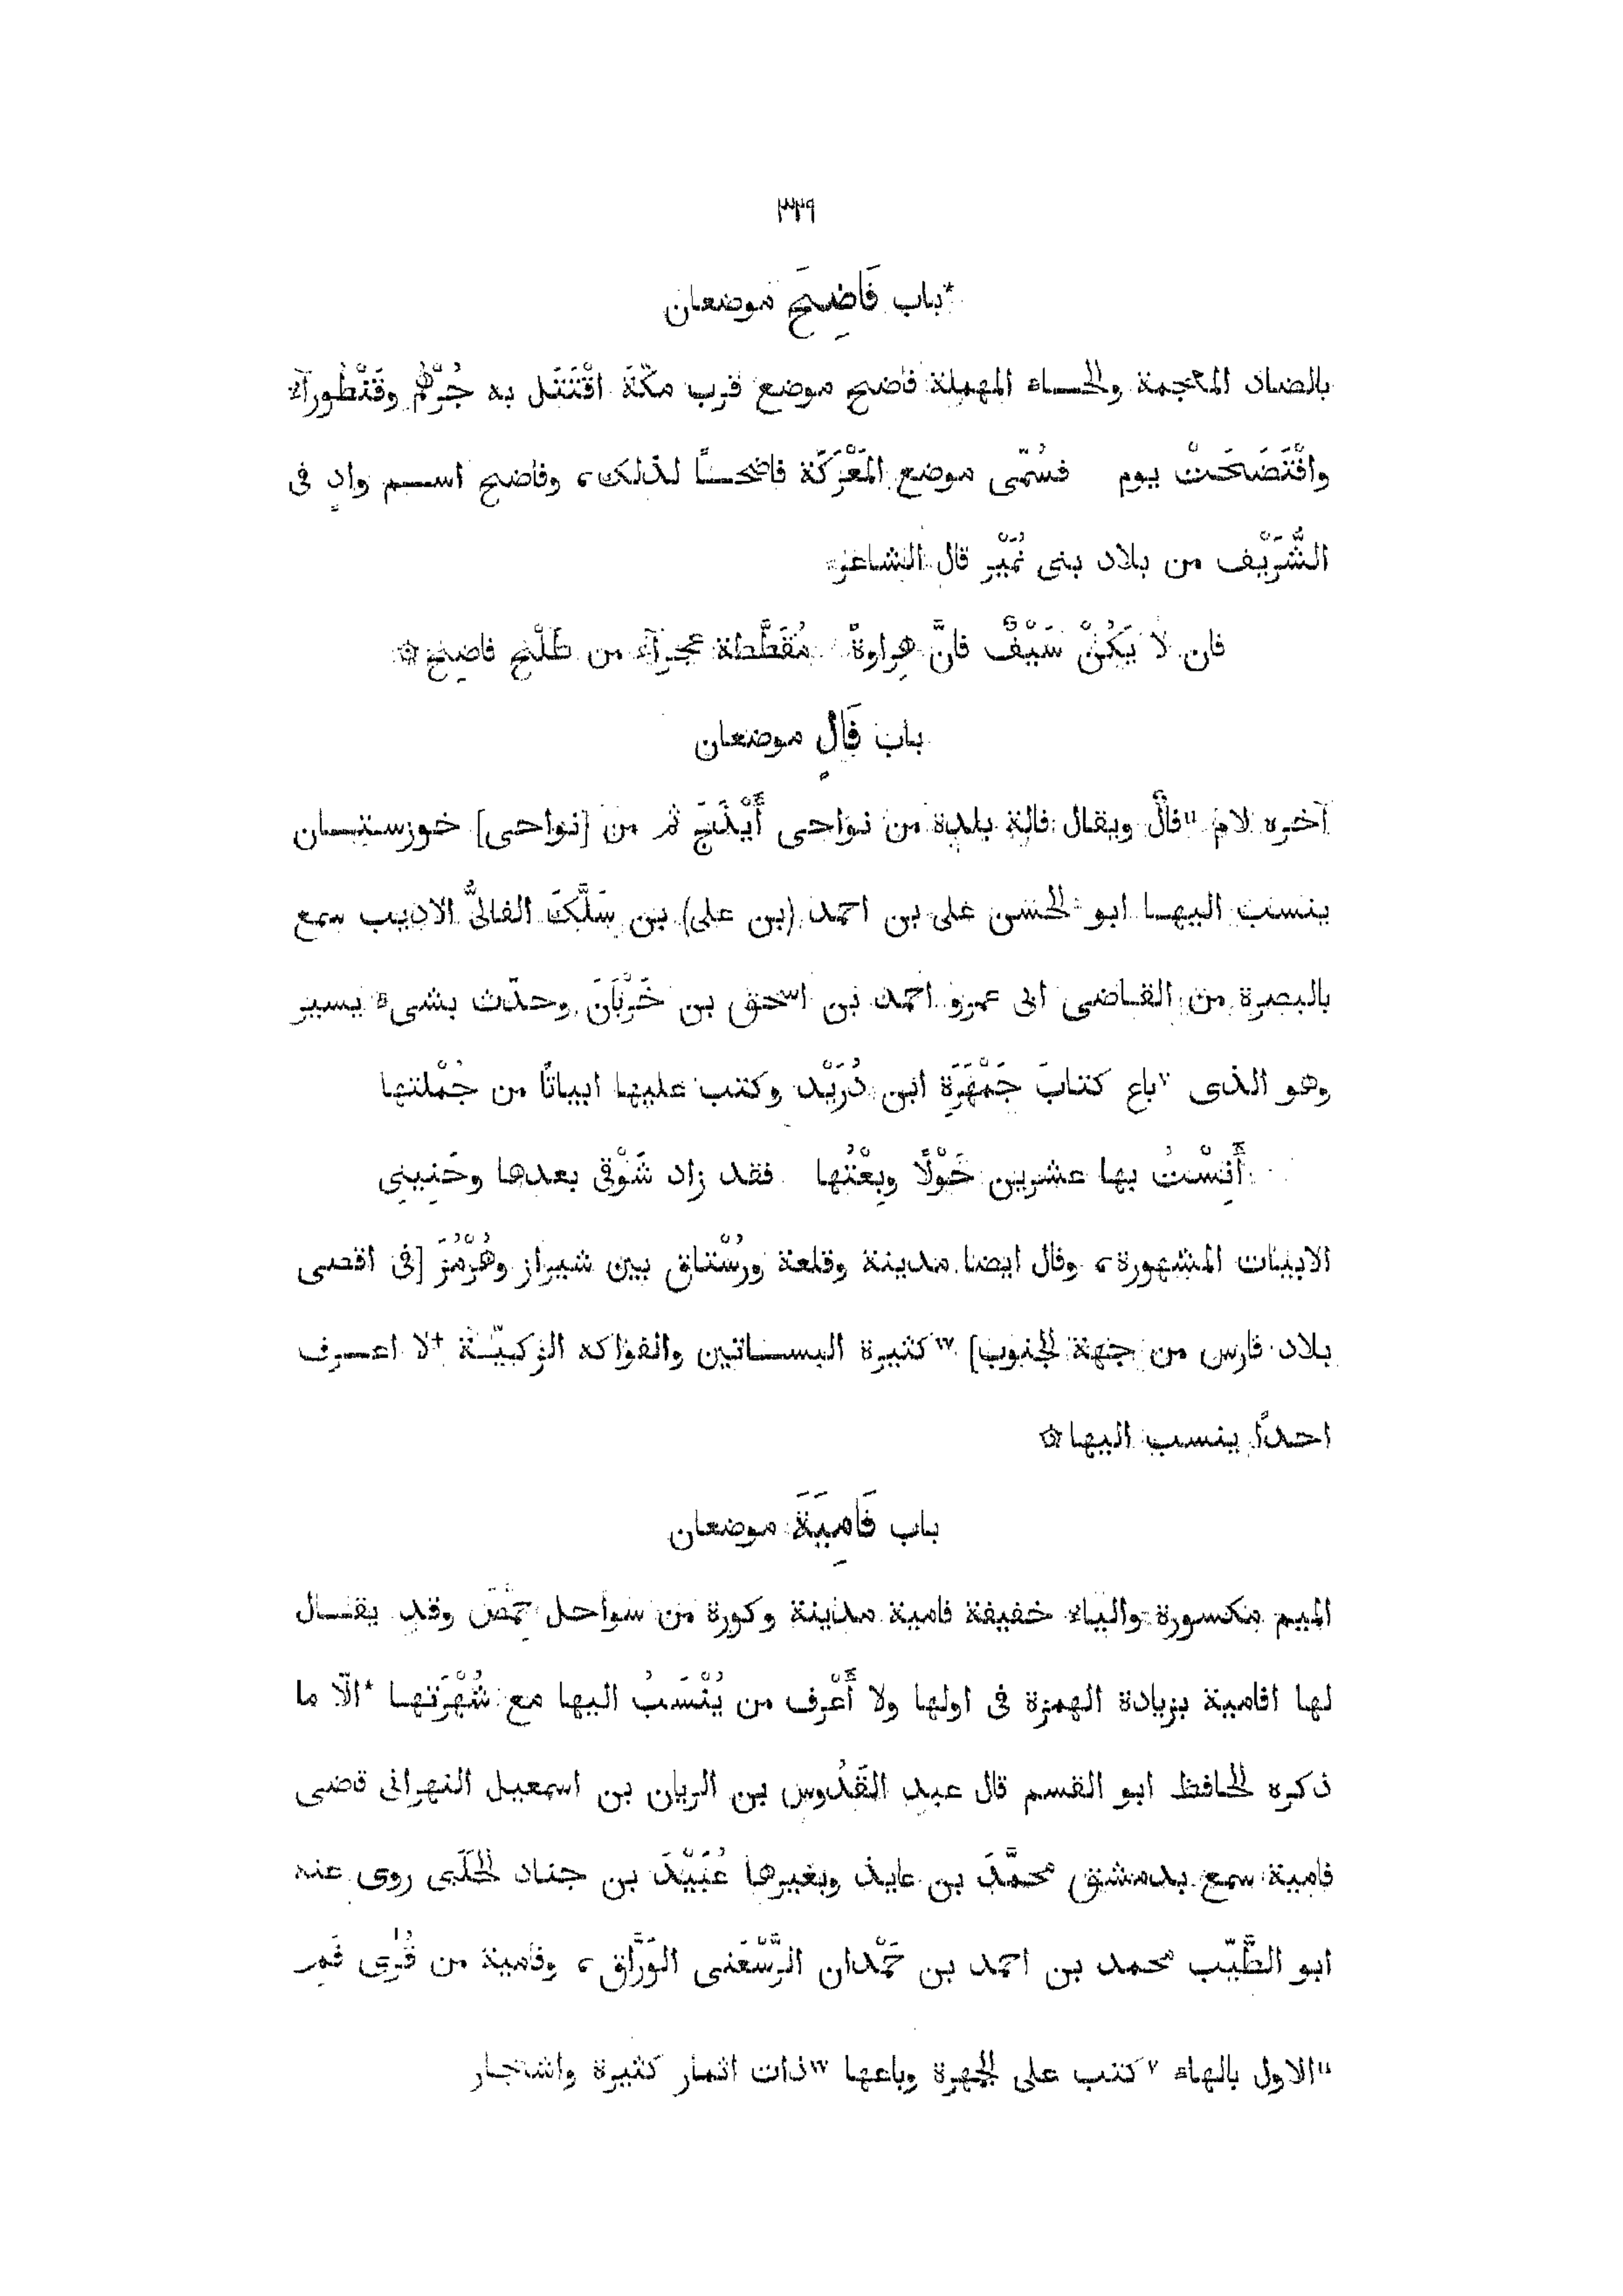 ٣٣٩
*باب فَاضِحَ موضعان
بالضاد المعجمة والحـاء المهملة فاضح موضع قرب مكّة اقْتَتَل به جُرْهُم وقَنْطُورآء
وافْتَضَحَتْ يوم فسُمّى موضع المَعْرَكَة فاضحـًا لذلك، وفاضح اسـم وادٍ فى
الشُّرَيْف من بلاد بنى نُمَيْر قال الشاعر
فان لا يَكُنْ سَيْفٌ فانَّ هِراوةً مُقَطَّطة عجرآء من طَلْحِ فاضِح۞
باب فَالٍ موضعان
آخره لام ᵘفالٌ ويقال فالة بلدة من نواحى أَيْذَجَ ثم من [نواحى] خوزستـان
ينسب اليهـا ابو الحسن على بن احمد (بن على) بن سَلَّكَ الفالىُّ الاديب سمع
بالبصرة من القـاضى ابى عمرو احمد بن اسحق بن خَرْبَانَ وحدّث بشىء يسير
وهو الذى ᵛباع كتابَ جَمْهَرَةِ ابن دُرَيْد وكتب عليها ابياتًا من جُمْلتها
أَنِسْتُ بها عشرين حَوْلًا وبِعْتُها فقد زاد شَوْقى بعدها وحَنِينى
الابيات المشهورة، وفال ايضا مدينة وقلعة ورُسْتاق بين شيراز وهُرْمُزَ [فى اقصى
بلاد فارس من جهة الجنوب] ʷكثيرة البسـاتين والفواكه الزكيّـة †لا اعـرف
احدًا ينسب اليها۞
باب فَامِيَةَ موضعان
الميم مكسورة والياء خفيفة فامية مدينة وكورة من سواحل حِمْصَ وقد يقـال
لها افامية بزيادة الهمزة فى اولها ولا أَعْرف من يُنْسَبُ اليها مع شُهْرَتهـا *الّا ما
ذكره الحافظ ابو القسم قال عبد القُدُّوس بن الريان بن اسمعيل النهرانى قاضى
فامية سمع بدمشق محمَّدَ بن عايذ وبغيرها عُبَيْدَ بن جناد الحَلَبى روى عنه
ابو الطَّيّب محمد بن احمد بن حَمْدان الرَّسْعَنى الوَرَّاق، وفامية من قُرَى فَمِ
ᵘالاول بالهاء ᵛكتب على الجمهرة وباعها ʷذات اثمار كثيرة واشجـار